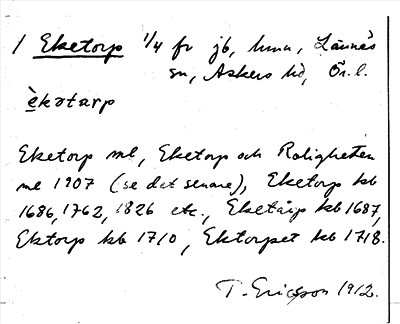 1 Eketorp 1/4 fr jb, hmn, Lännäs
sn, Askers hd, Ör. l.
èkətarp
Eketorp ml, Eketorp och Roligheten
ml 1907 (se det senare), Eketorp kb
1686, 1762, 1826 etc., Eketårp kb 1687,
Ektorp kb 1710, Ektorpet kb 1718.
T. Ericsson 1912.